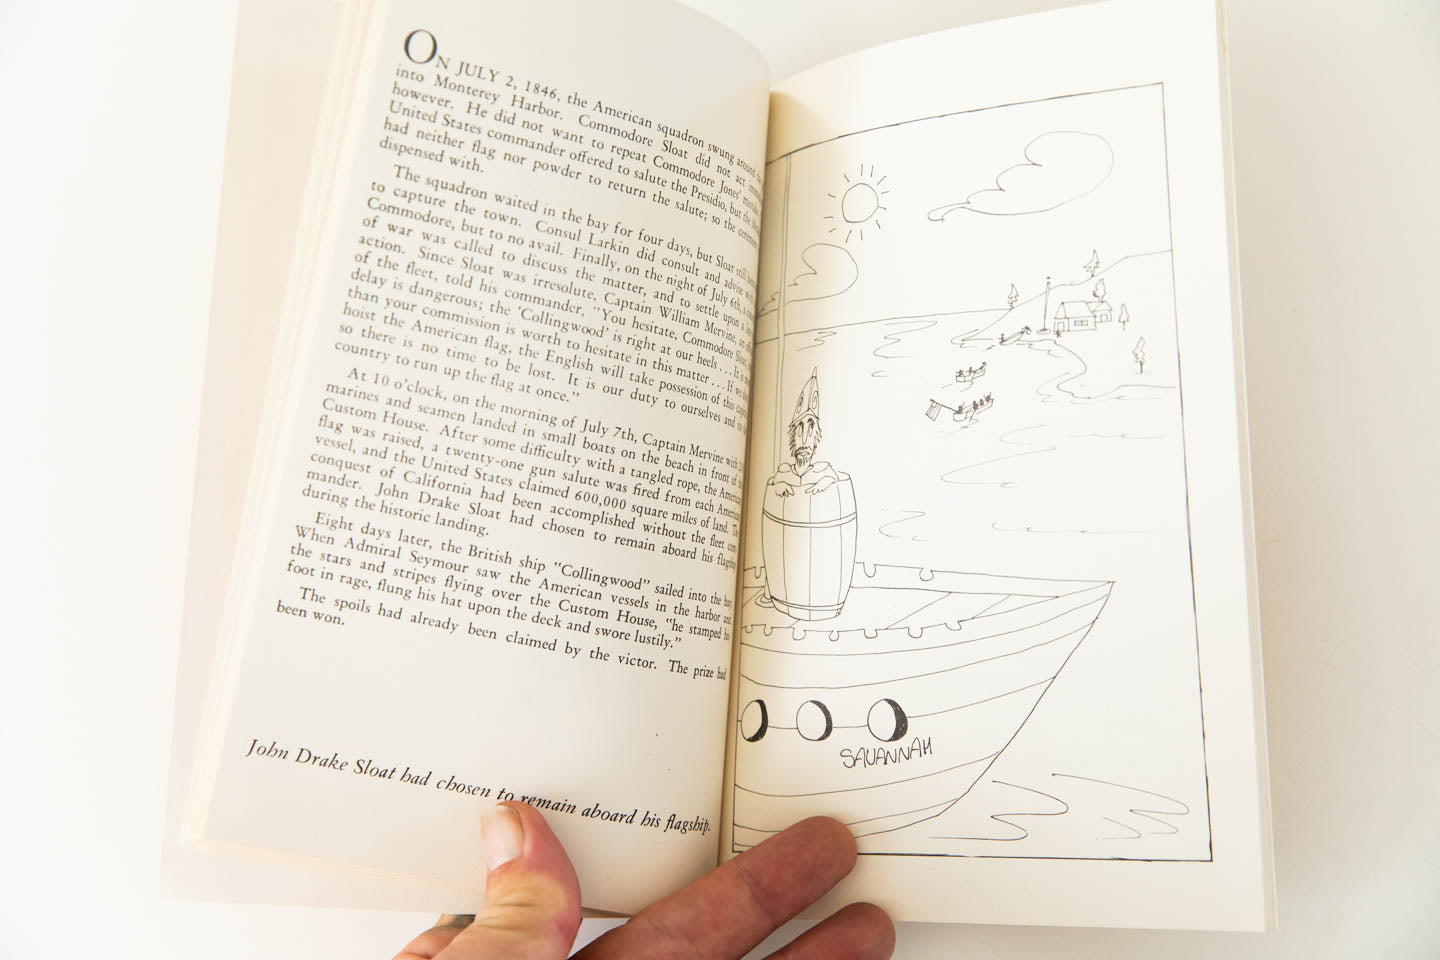 ON JULY 2, 1846, the American squadron swung around the
into Monterey Harbor. Commodore Sloat did not act
however. He did not want to repeat Commodore Jones'
United States commander offered to salute the Presidio, but the
had neither flag nor powder to return the salute; so the
dispensed with.
The squadron waited in the bay for four days, but Sloat still
to capture the town. Consul Larkin did consult and advise
Commodore, but to no avail. Finally, on the night of July 6th, a
of war was called to discuss the matter, and to settle upon a
action. Since Sloat was irresolute, Captain William Mervine, an
of the fleet, told his commander, "You hesitate, Commodore Sloat,
delay is dangerous; the 'Collingwood' is right at our heels . . . It is
than your commission is worth to hesitate in this matter . . . If we
hoist the American flag, the English will take possession of this
so there is no time to be lost. It is our duty to ourselves and to
country to run up the flag at once."
At 10 o'clock, on the morning of July 7th, Captain Mervine with
marines and seamen landed in small boats on the beach in front of
Custom House. After some difficulty with a tangled rope, the American
flag was raised, a twenty-one gun salute was fired from each American
vessel, and the United States claimed 600,000 square miles of land. The
conquest of California had been accomplished without the fleet com-
mander. John Drake Sloat had chosen to remain aboard his flagship
during the historic landing.
Eight days later, the British ship "Collingwood" sailed into the bay.
When Admiral Seymour saw the American vessels in the harbor and
the stars and stripes flying over the Custom House, "he stamped his
foot in rage, flung his hat upon the deck and swore lustily."
The spoils had already been claimed by the victor. The prize had
been won.
John Drake Sloat had chosen to remain aboard his flagship.
SAVANNAH